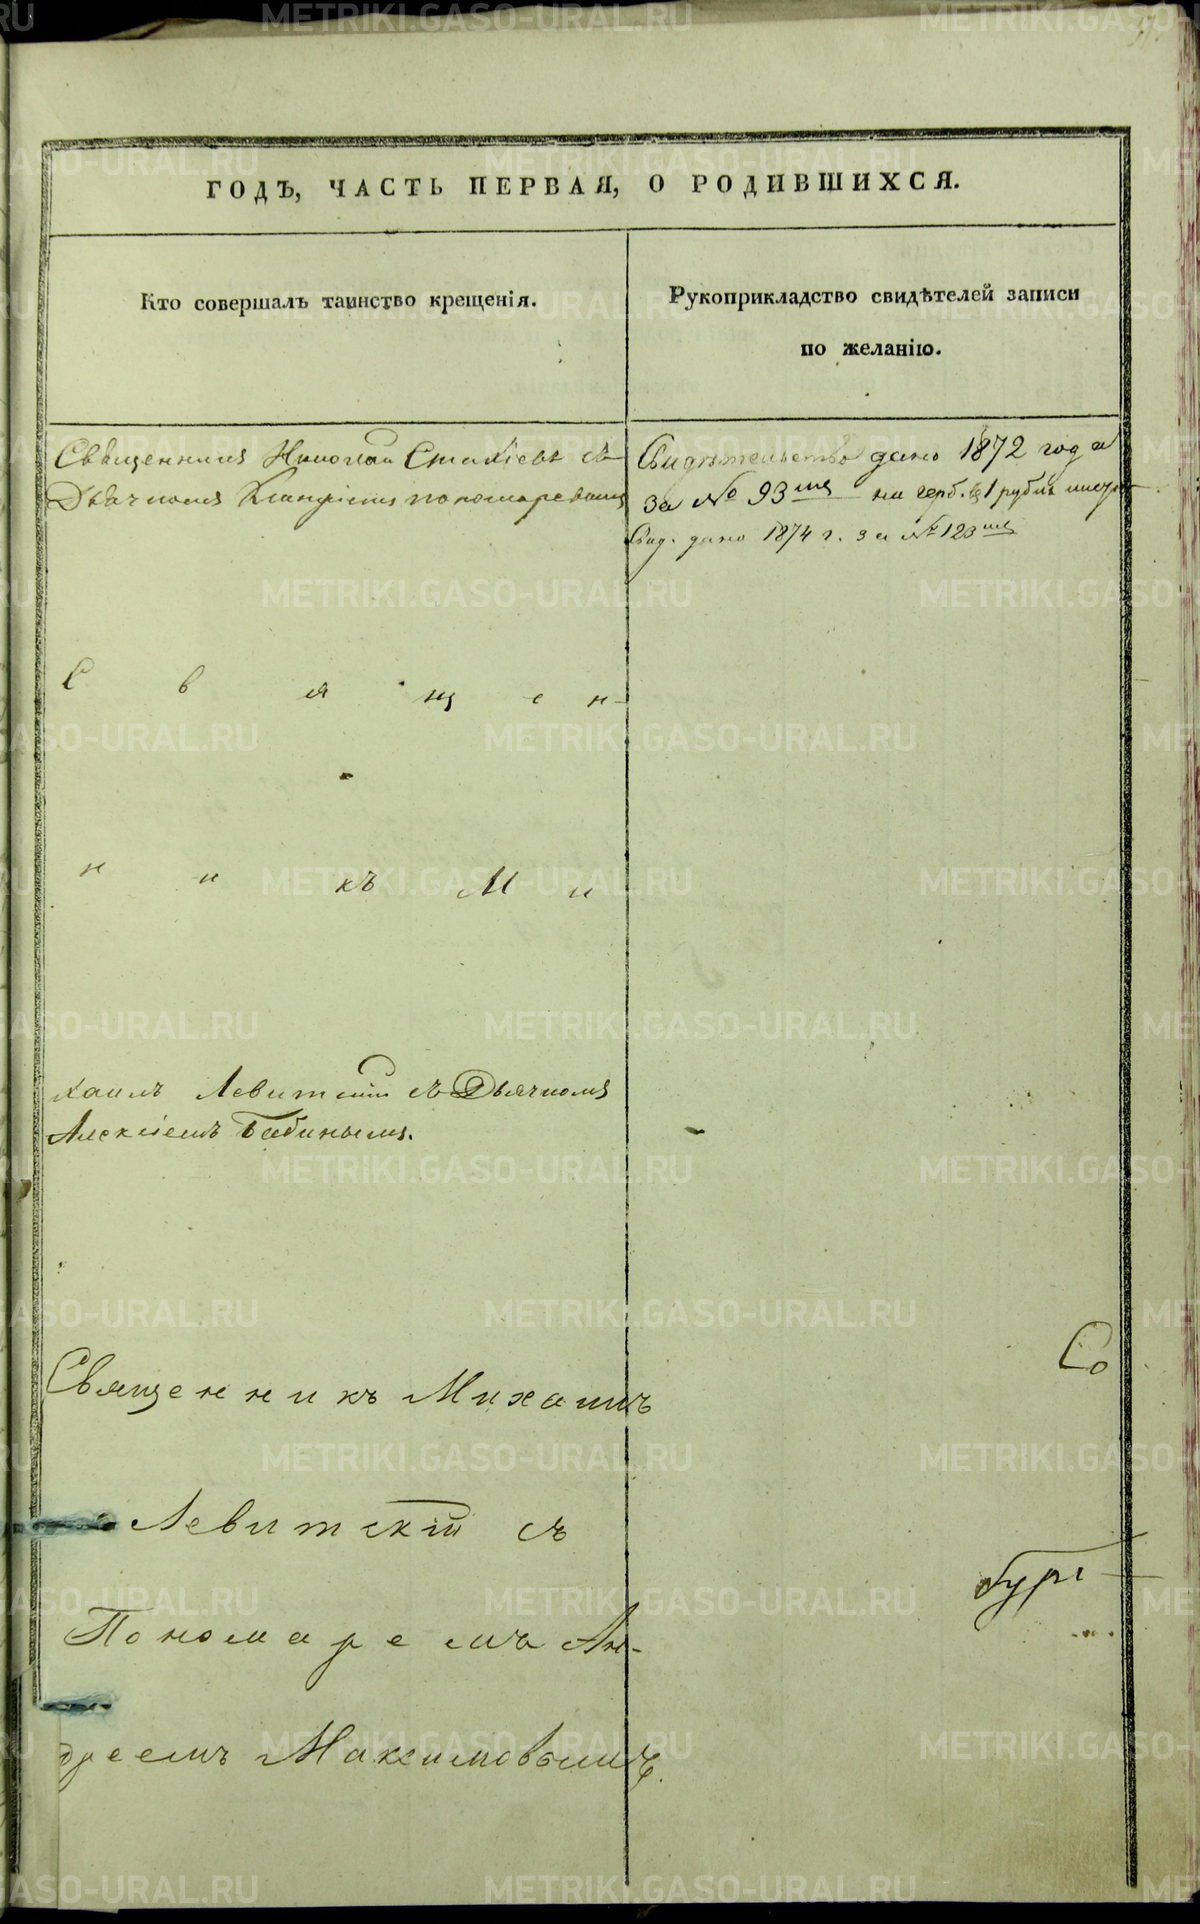 ГОДЪ, ЧАСТЬ ПЕРВАЯ, О РОДИВШИХСЯ.
Кто совершалъ таинство крещенія.
Рукоприкладство свидѣтелей записи
по желанію.
Священникъ Николай съ
Дьячкомъ Пономаревымъ
Свидѣтельство дано 1872 года
за № 93мъ на герб. 1 рубл.
Свид. дано 1874 г. за № 123мъ
С в я щ е н-
н и к ъ М и
хаилъ Левитскій съ Дьячкомъ
Алексіемъ Бабинымъ.
Священникъ Михаилъ
Левитскій съ
Пономаремъ Ан-
дреемъ Максимовымъ.
Со
бург
METRIKI.GASO-URAL.RU